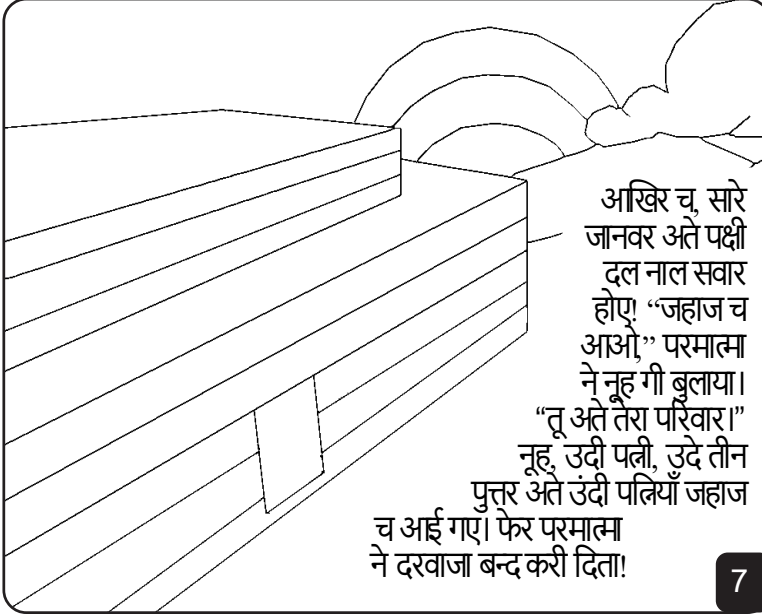 आखिर च, सारे
जानवर अते पक्षी
दल नाल सवार
होए! “जहाज च
आओ,” परमात्मा
ने नूह गी बुलाया।
“तू अते तेरा परिवार।”
नूह, उदी पत्नी, उदे तीन
पुत्तर अते उंदी पत्नियाँ जहाज
च आई गए। फेर परमात्मा
ने दरवाजा बन्द करी दिता!
7